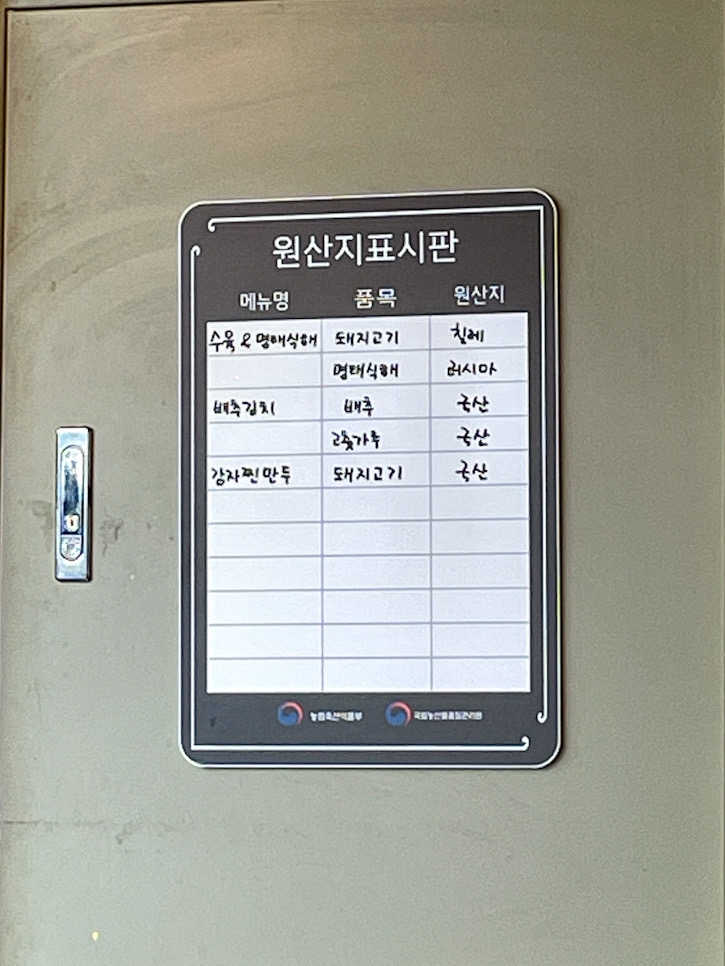 원산지표시판
메뉴명 품목 원산지
수육 & 명태식해 돼지고기 칠레
명태식해 러시아
배추김치 배추 국산
고춧가루 국산
감자찐만두 돼지고기 국산
농림축산식품부 국립농산물품질관리원